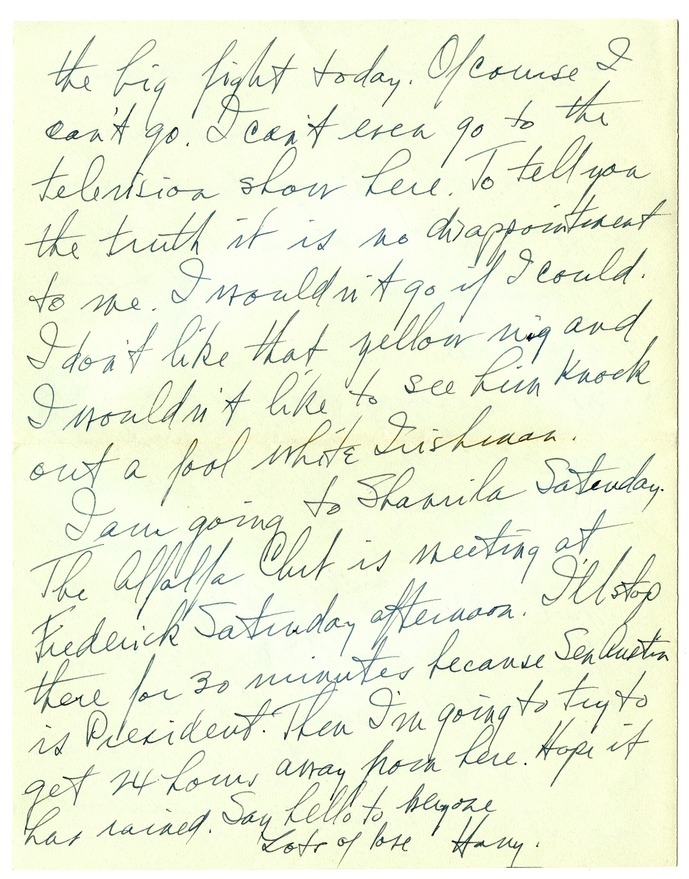 the big fight today. Ofcourse I
can't go. I can't even go to the
television show here. To tell you
the truth it is no disappointment
to me. I wouldn't go if I could.
I don't like that yellow nig and
I wouldn't like to see him knock
out a fool white Irishman.
I am going to Shanrila Saturday.
The Alfalfa Club is meeting at
Frederick Saturday afternoon. I'll stop
there for 30 minutes because Sen Austin
is President. Then I'm going to try to
get 24 hours away from here. Hope it
has rained. Say hello to everyone
Lots of love Harry.